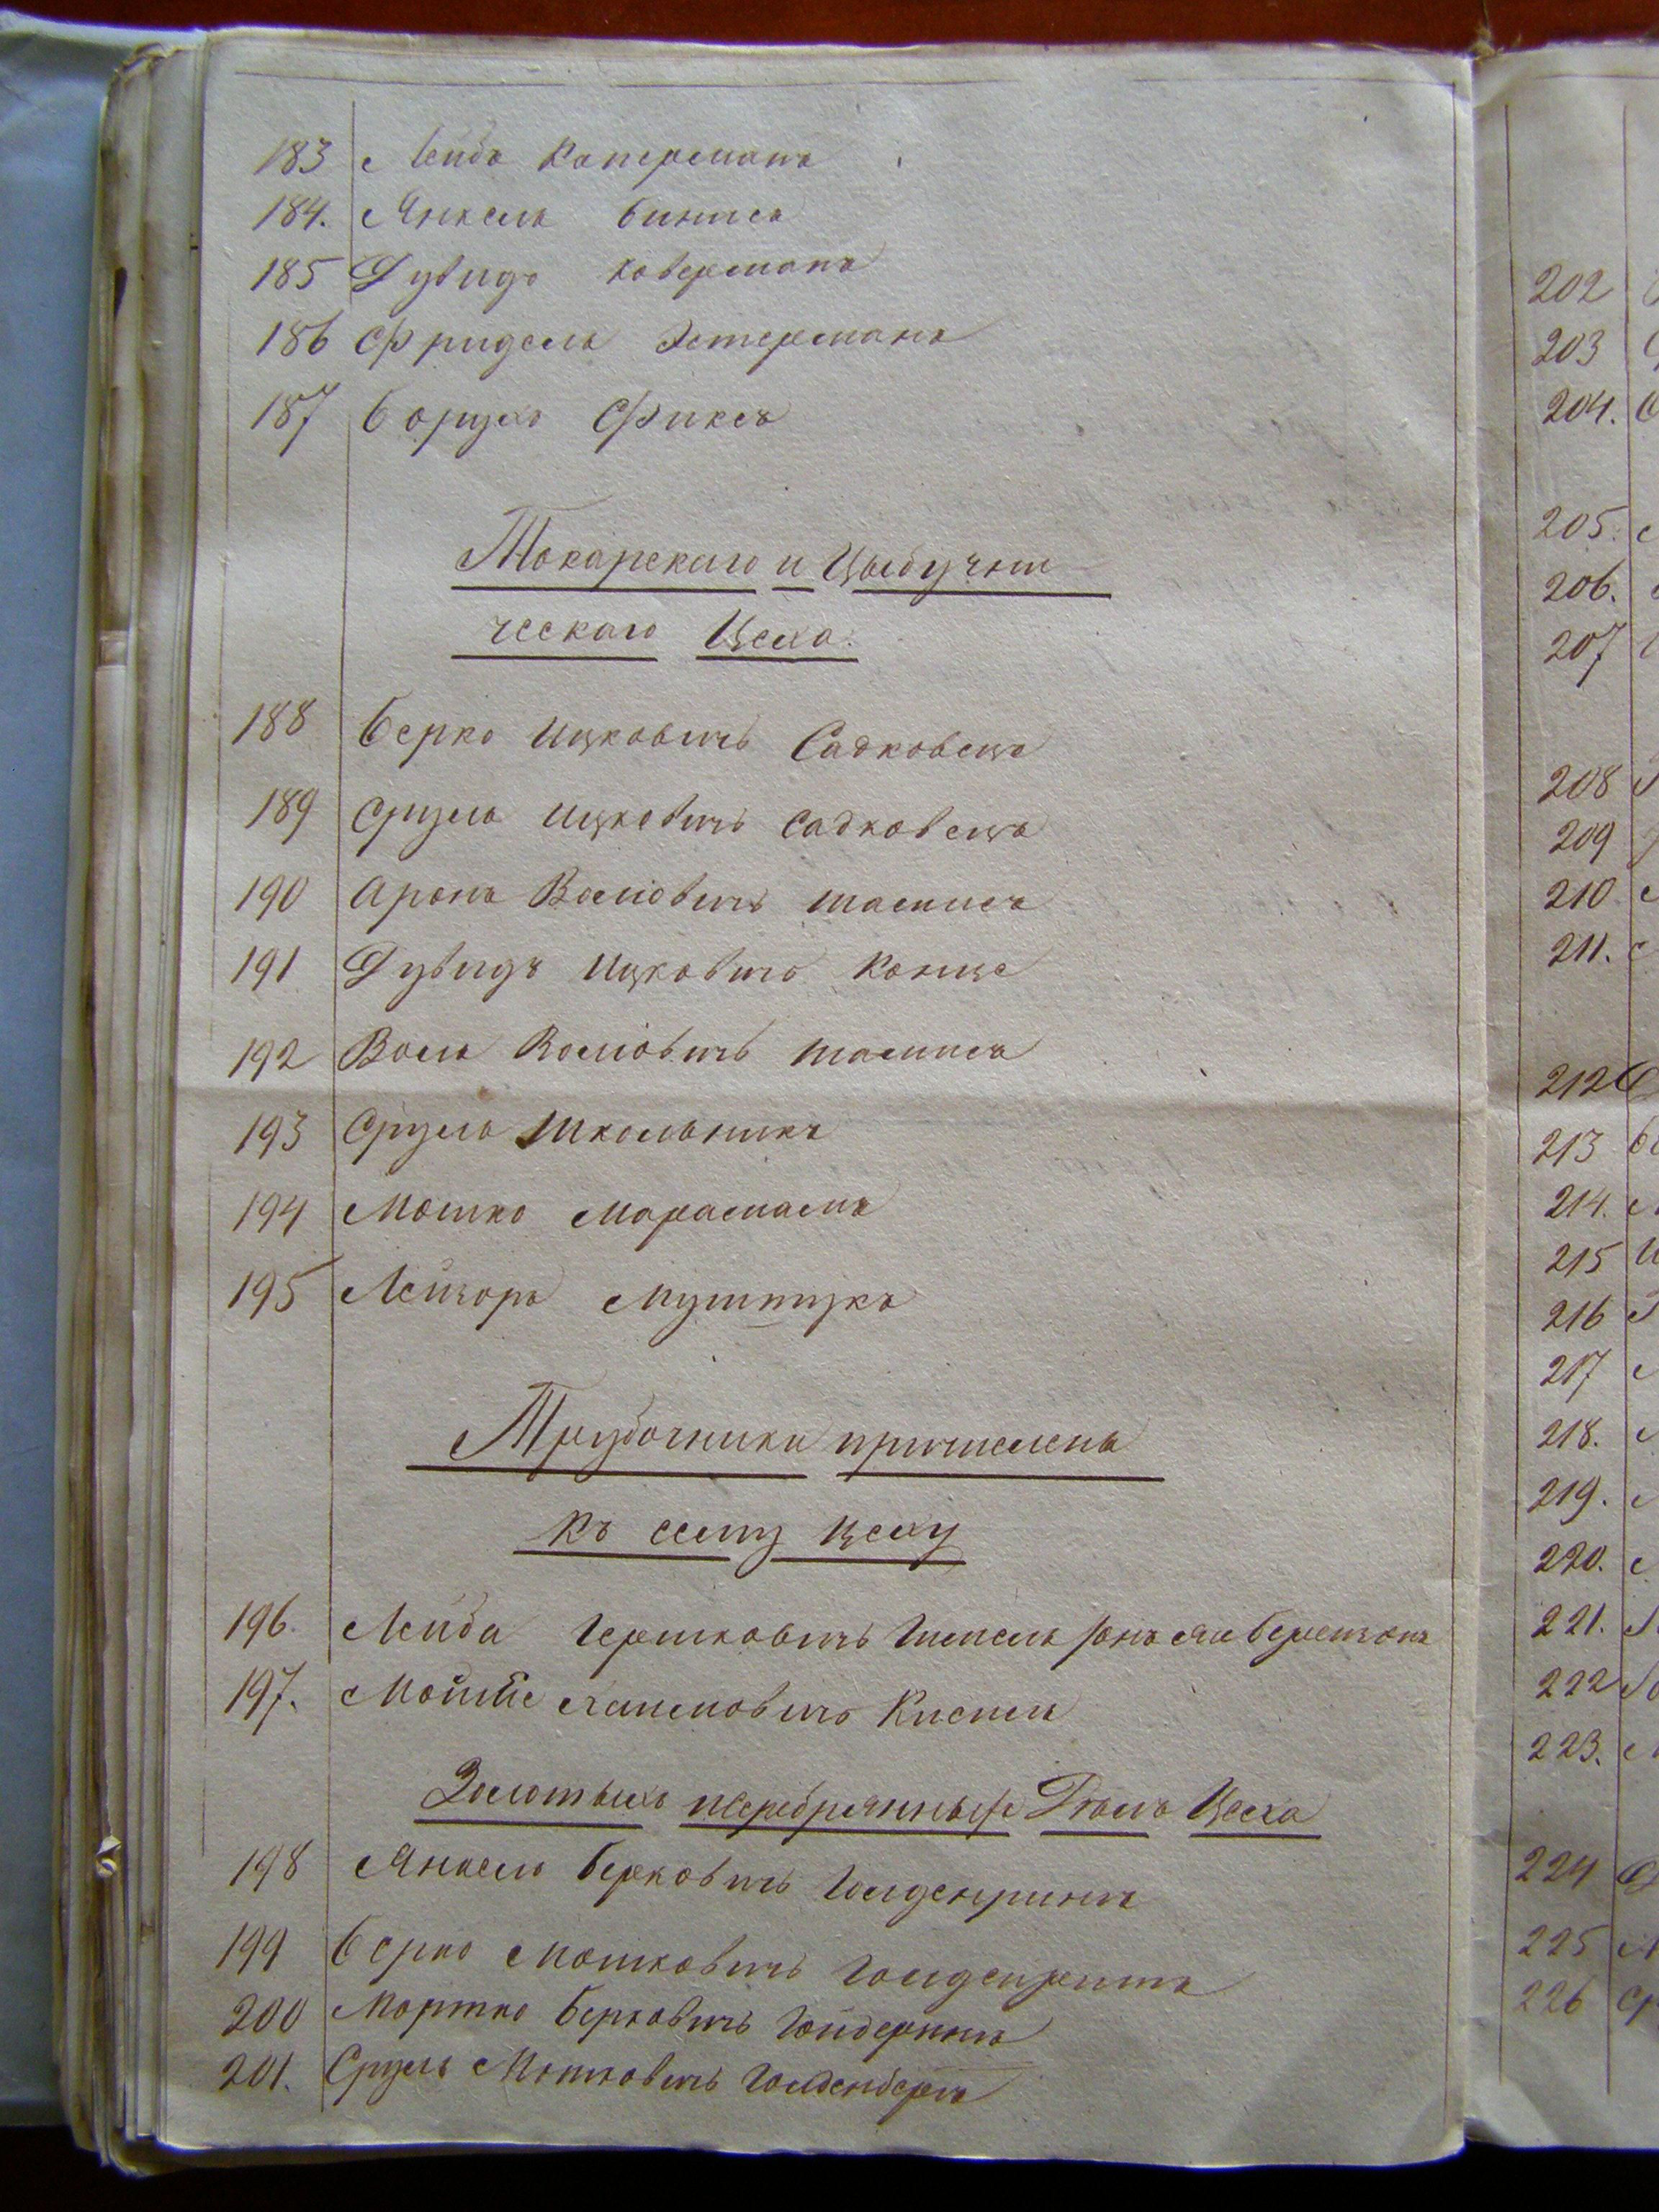 183 Лейба Каперманъ
184. Янкель Бинысъ
185 Дувидъ Коверманъ
186 Фридель Эстерманъ
187 Борухъ Фиксъ
Токарскаго и Цыбучни
ческаго Цеха.
188 Берко Ицковичъ Садковецъ
189 Сруль Ицковичъ Садковецъ
190 Аронъ Волиовичъ
191 Дувидъ Ицковичъ
192 Волъ Волиовичъ
193 Сруль Школьникъ
194 Мошко
195 Лейзоръ Мунштукъ
Трубочники причислены
къ сему цеху
196. Лейба Гершковичъ
197. Мойше Хаимовичъ Кисель
Золотыхъ и серебрянныхъ Дѣлъ Цеха
198 Янкель Берковичъ Голденрингъ
199 Берко Мошковичъ Голденрингъ
200 Мортко Берковичъ
201. Сруль Мошковичъ Голденбергъ
202
203
204.
205.
206.
207
208
209
210
211.
212
213
214.
215
216
217
218.
219.
220.
221.
222
223.
224
225
226